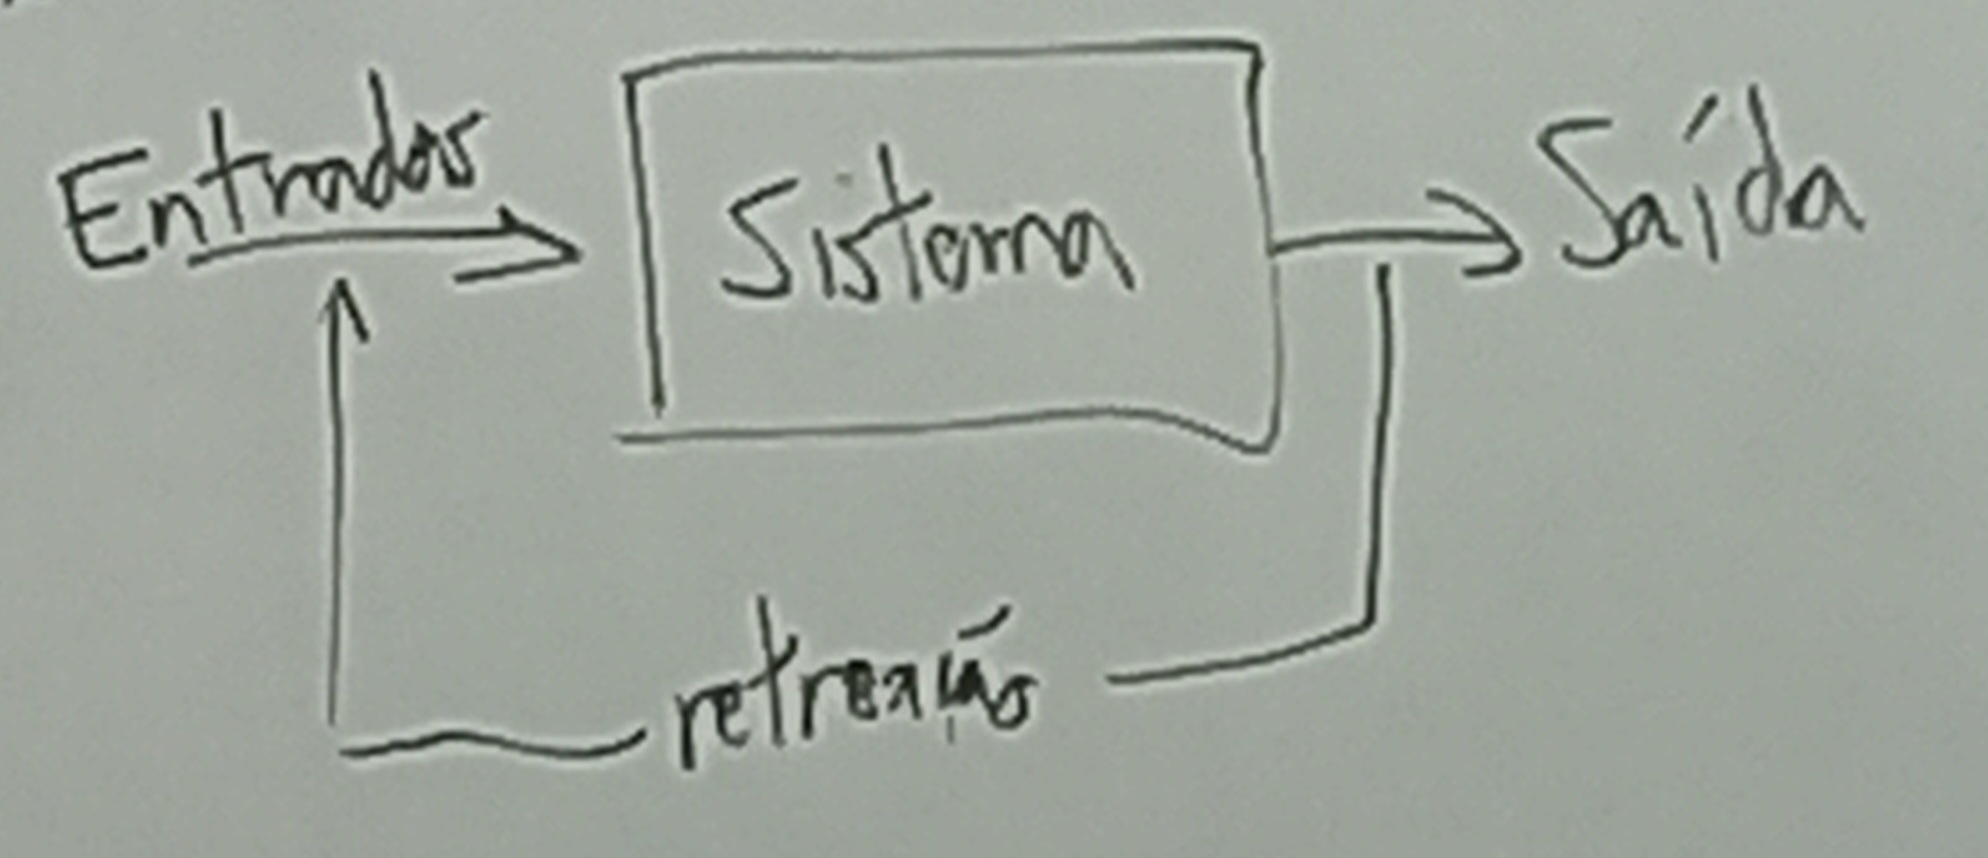 Entradas
Sistema
Saída
retreação